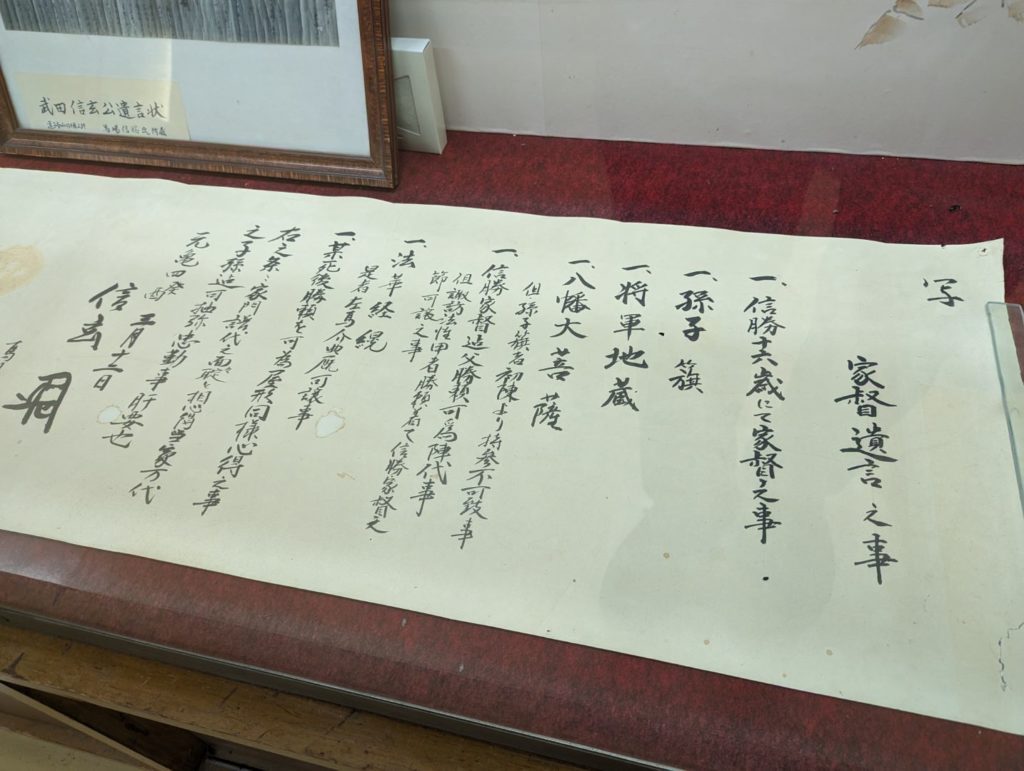 写
家督遺言之事
一、信勝十六歳にて家督之事
一、孫子旗
一、将軍地蔵
一、八幡大菩薩
但孫子籏者初陳より持参不可致事
一、信勝家督迠父勝頼可爲陣代事
但諏訪法性甲者勝頼着て信勝家督之
節可譲之事
一、法華経 幌
是者左馬介典厩可譲事
一、某死後勝頼を可為屋形同様心得之事
右之条々家門譜代之面〻相心得当家万代
之子孫迠可抽弥忠勤事肝要也
元亀四癸酉 三月十二日
信玄
武田信玄公遺言状